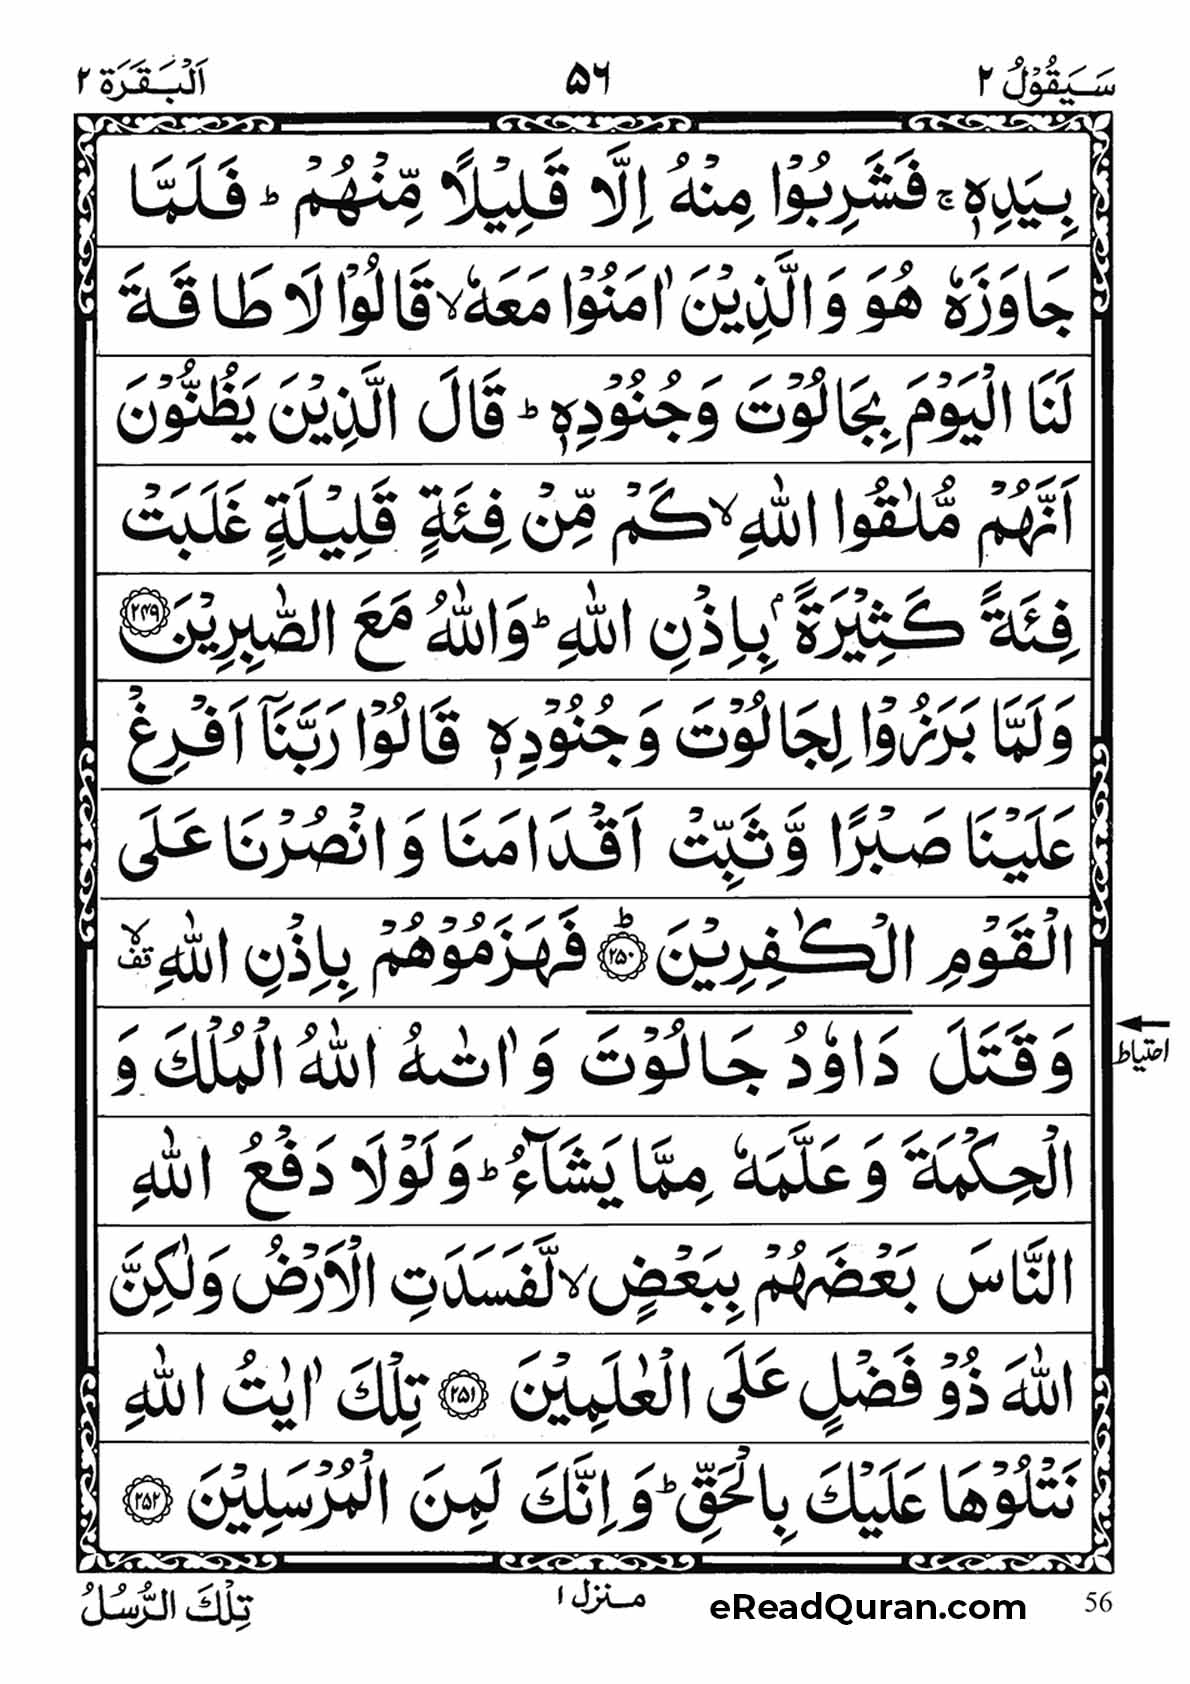 سَيَقُوْلُ ٢ ٥٦ اَلْبَقَرَة ٢
بِيَدِهٖ ۚ فَشَرِبُوْا مِنْهُ اِلَّا قَلِيْلًا مِّنْهُمْ ؕ فَلَمَّا
جَاوَزَهٗ هُوَ وَالَّذِيْنَ اٰمَنُوْا مَعَهٗ ۙ قَالُوْا لَا طَاقَةَ
لَنَا الْيَوْمَ بِجَالُوْتَ وَجُنُوْدِهٖ ؕ قَالَ الَّذِيْنَ يَظُنُّوْنَ
اَنَّهُمْ مُّلٰقُوا اللّٰهِ ۙ كَمْ مِّنْ فِئَةٍ قَلِيْلَةٍ غَلَبَتْ
فِئَةً كَثِيْرَةًۢ بِاِذْنِ اللّٰهِ ؕ وَاللّٰهُ مَعَ الصّٰبِرِيْنَ ۝٢٤٩
وَلَمَّا بَرَزُوْا لِجَالُوْتَ وَجُنُوْدِهٖ قَالُوْا رَبَّنَاۤ اَفْرِغْ
عَلَيْنَا صَبْرًا وَّثَبِّتْ اَقْدَامَنَا وَانْصُرْنَا عَلَى
الْقَوْمِ الْكٰفِرِيْنَ ؕ ۝٢٥٠ فَهَزَمُوْهُمْ بِاِذْنِ اللّٰهِ ۙ قف
وَقَتَلَ دَاوٗدُ جَالُوْتَ وَاٰتٰىهُ اللّٰهُ الْمُلْكَ وَ
احتیاط
الْحِكْمَةَ وَعَلَّمَهٗ مِمَّا يَشَآءُ ؕ وَلَوْلَا دَفْعُ اللّٰهِ
النَّاسَ بَعْضَهُمْ بِبَعْضٍ ۙ لَّفَسَدَتِ الْاَرْضُ وَلٰكِنَّ
اللّٰهَ ذُوْ فَضْلٍ عَلَى الْعٰلَمِيْنَ ۝٢٥١ تِلْكَ اٰيٰتُ اللّٰهِ
نَتْلُوْهَا عَلَيْكَ بِالْحَقِّ ؕ وَاِنَّكَ لَمِنَ الْمُرْسَلِيْنَ ۝٢٥٢
56 eReadQuran.com منزل ١ تِلْكَ الرُّسُلُ